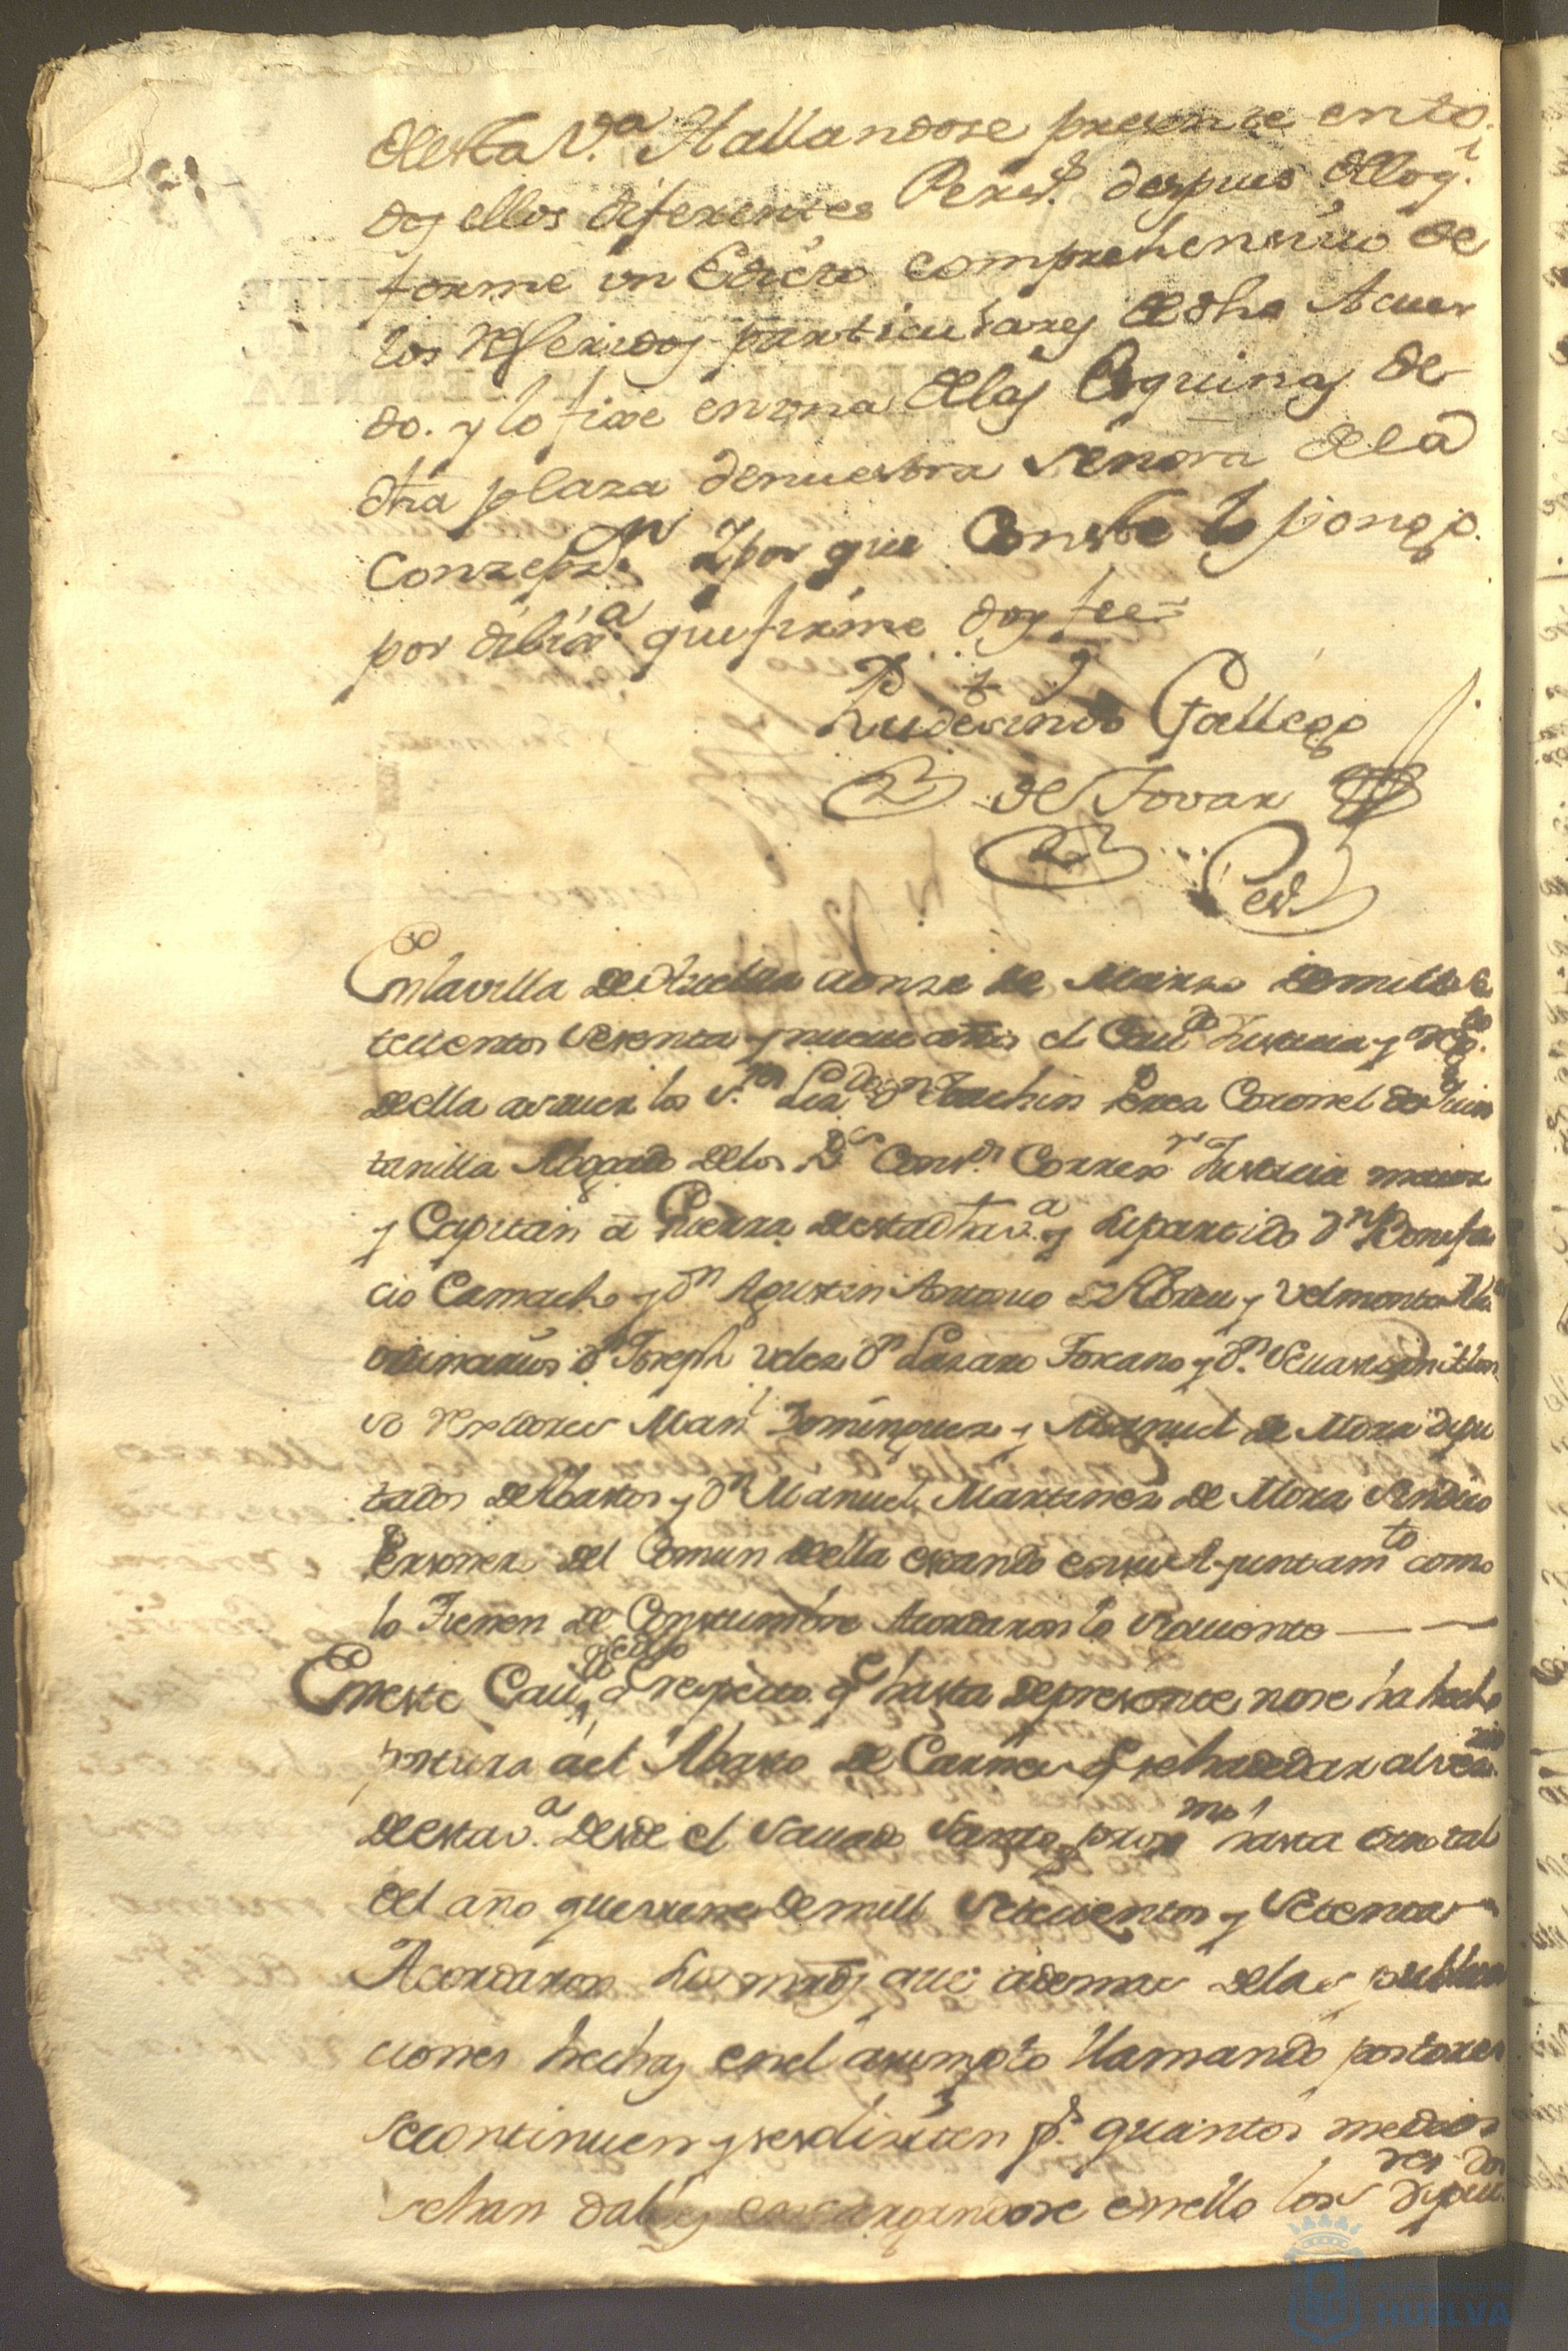 desta V.ª Hallandose presente ento
dos ellos diferentes Pers.s despues de lo q.l
forme un Edicto comprehensivo de
los referidos particulares de dho Acuer
do. y lo fixe en una de las Esquinas de
dha plaza de nuestra Señora de la
Conzepz.n Y por que Conste lo pongo
por dilix.ª que firme doy fee =
Rudesindo Gallego
de Tovar
Es.no
En la villa de Huelva a onze de Marzo de mill se
tecientos sesenta y nueve años el Cau.do Justicia y Reg.to
de ella asauer los S.res Liz.do D.n Joachin Perea Coronel de Quin
tanilla Abogado de los R.s Cons.s Correx.r Justicia maior
y Capitan a Guerra desta dha v.ª y su partido D.n Bonifa
cio Camacho y D.n Agustin Antonio de Abreu y Velmonte Alc.s
ordinarios D.n Joseph Velez D.n Lazaro Forcano y D.n
so rexidores Man.l Dominguez y Manuel de Mora dipu
tados de Abastos y D.n Manuel Martinez de Mora Sindico
Personero del Comun de ella estando en su Ayuntam.to como
lo Tienen de Constumbre Acordaron lo siguiente
En este Cau.do respecto q.e hasta de presente no se ha hecho
postura a el Abasto de Carnes q.e se ha de dar al vecin.o
de esta v.ª desde el Sauado Santo prox.mo hasta otro tal
del año que viene de mill setecientos y setenta
Acordaron sus mrds que ademas de las publica
ciones hechas en el asumpto llamando postores
se continuen y se soliziten p.r quantos medios
se han dable encargandose en ello los S.res Diput.dos
HUELVA